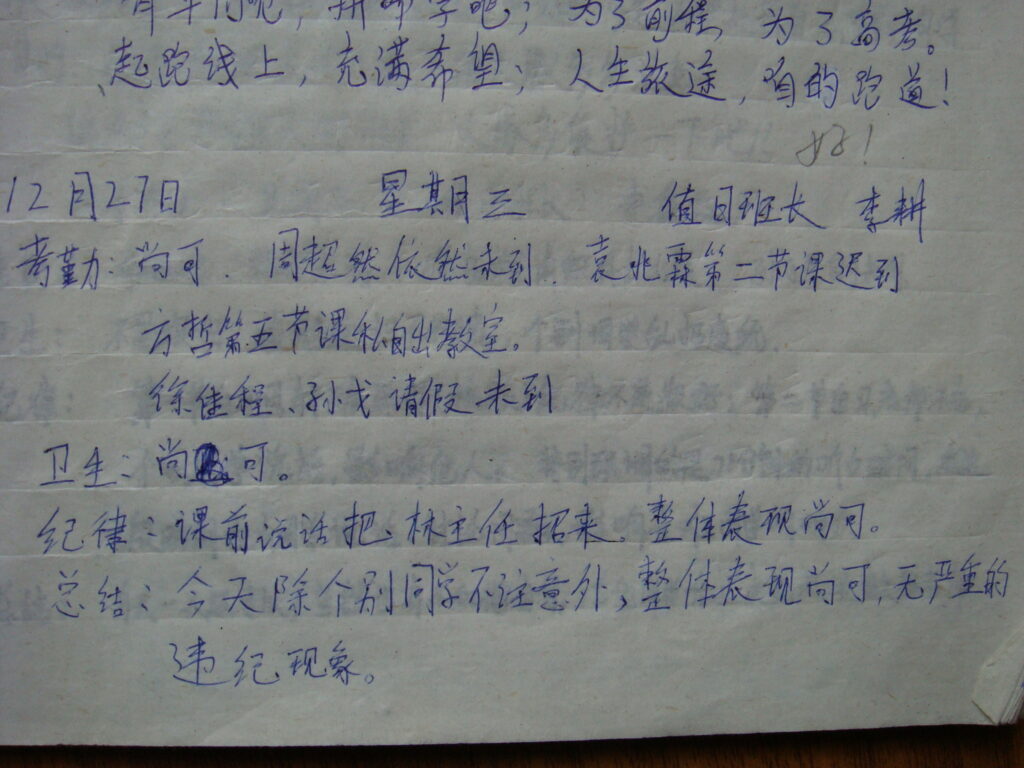 拼命学吧；为了前程，为了高考。
起跑线上，充满希望；人生旅途，咱的跑道！
好！
12月27日 星期三 值日班长 李耕
考勤：尚可．周超然依然未到．袁兆霖第二节课迟到
方哲第五节课私自出教室。
徐佳程、孙戈请假未到
卫生：尚可。
纪律：课前说话把林主任招来。整体表现尚可。
总结：今天除个别同学不注意外，整体表现尚可，无严重的
违纪现象。